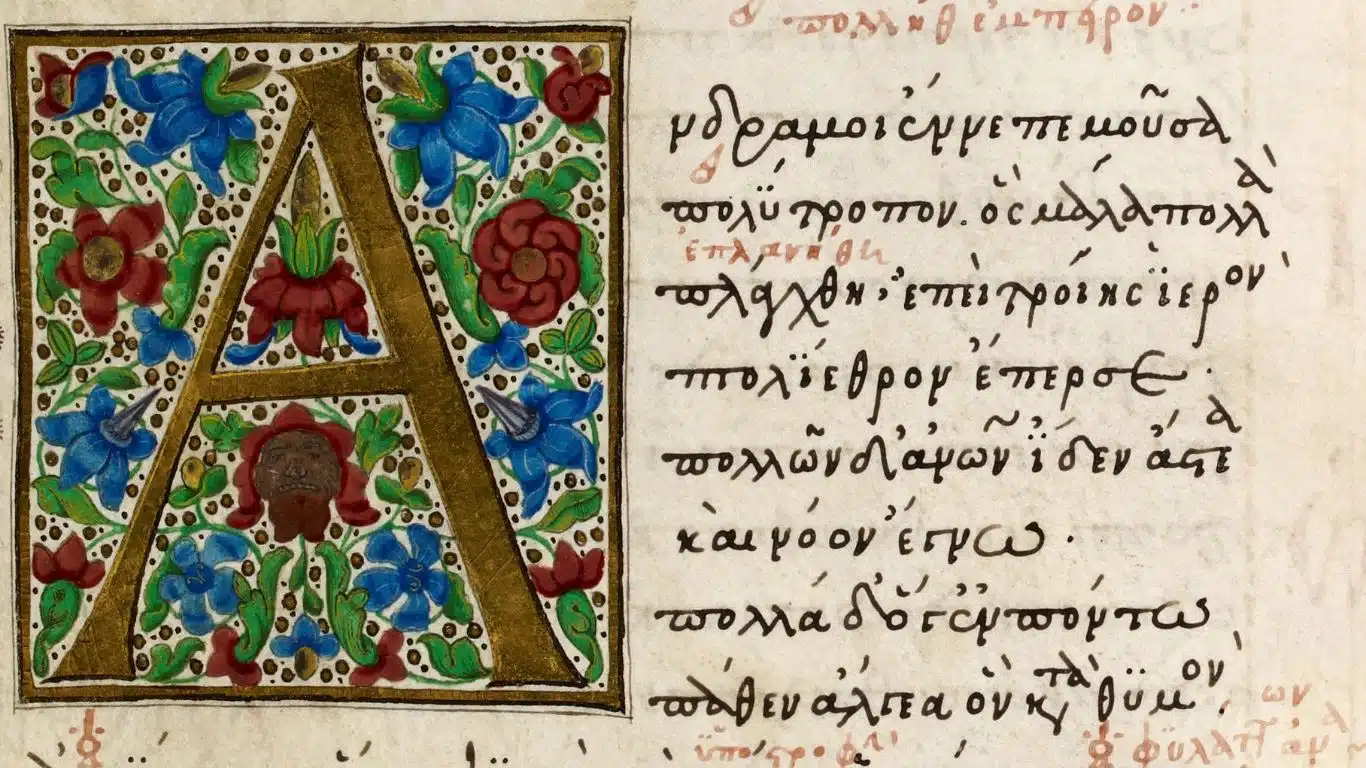 πολλὴν ἐμπειρον
Α
νδρα μοι ἔννεπε μοῦσα
πολύτροπον. ὃς μάλα πολλὰ
ἐπλανήθη
πλάγχθη, ἐπεὶ τροίης ϊερὸν
πτολΐεθρον ἔπερσε.
πολλῶν δ' ἀνθρώπων ΐδεν ἄστεα
καὶ νόον ἔγνω.
πολλὰ δ' ὅγ' ἐν πόντω
πάθεν ἄλγεα ὃν κατὰ θϋμόν.